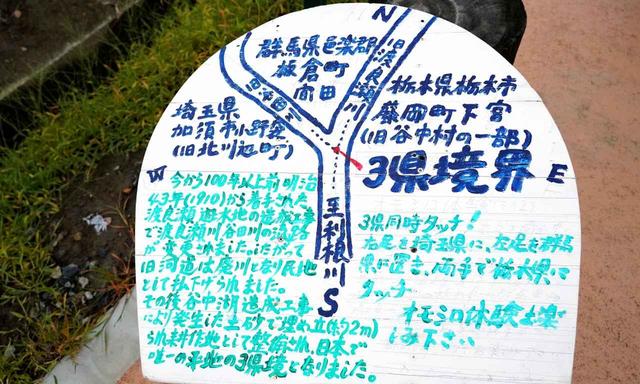 N
群馬県邑楽郡
板倉町
向田
旧渡良瀬川
旧谷田川
栃木県栃木市
藤岡町下宮
(旧谷中村の一部)
埼玉県
加須市小野袋
(旧北川辺町)
3県境界
W
E
至利根川
S
今から100年以上前明治
43年(1910)から着手された
渡良瀬遊水地の造成工事
で渡良瀬川谷田川の流路
が変更されました。したがって
旧河道は廃川となり民地
として払下げられました。
その後谷中湖造成工事
により発生した土砂で埋め立(約2m)
られ耕作地として整備され、日本で
唯一の平地の3県境となりました。
3県同時タッチ!
右足を埼玉県に、左足を群馬
県に置き、両手で栃木県に
タッチ
オモシロ体験お楽
しみ下さい